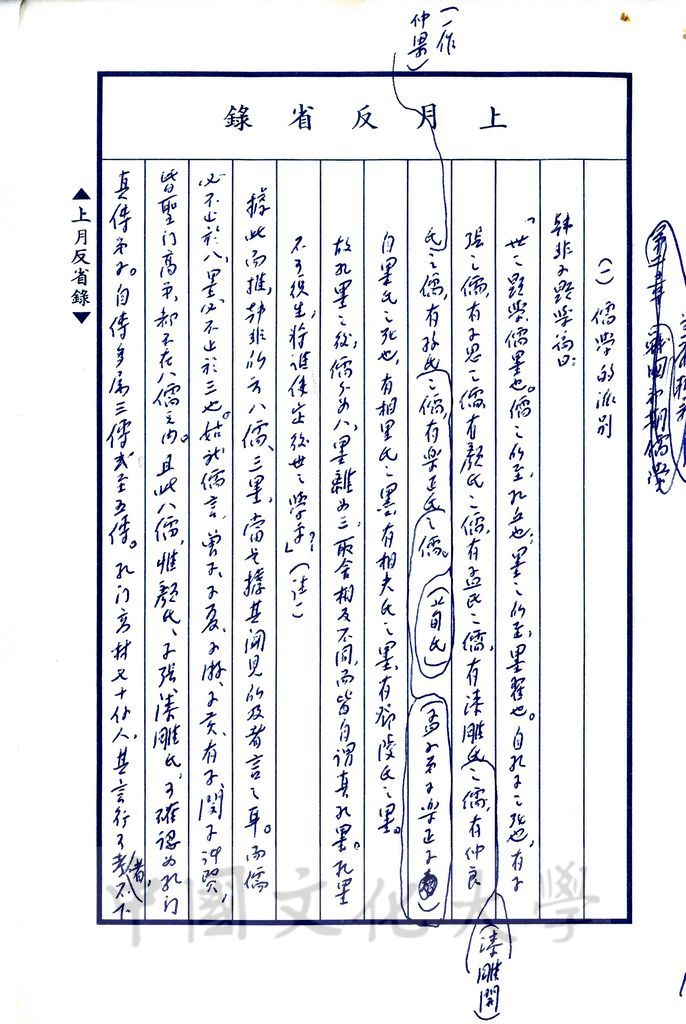 (一作
仲梁)
上月反省錄
第二章 戰國初期儒學
(一) 儒學的派別
韓非子顯學篇曰:
「世之顯學,儒墨也。儒之所至,孔丘也;墨之所至,墨翟也。自孔子之死也,有子
張之儒,有子思之儒,有顏氏之儒,有孟氏之儒,有漆雕氏之儒,有仲良
(漆雕開)
氏之儒,有孫氏之儒,有樂正氏之儒。
(荀氏)
(孟子弟子樂正子)
自墨氏之死也,有相里氏之墨,有相夫氏之墨,有鄧陵氏之墨。
故孔墨之後,儒分為八,墨離為三,取舍相反不同,而皆自謂真孔墨。孔墨
不可復生,將誰使定後世之學乎?」(註一)
據此而推,韓非所云八儒、三墨,當是據其聞見所及者言之耳。而儒
必不止於八,墨必不止於三也。姑就儒言,曾子、子夏、子游、子貢、有子、閔子諸賢,
皆聖門高弟,都不在八儒之內。且此八儒,惟顏氏、子張、漆雕氏,可確認為孔門
真傳弟子。自傳多屬三傳或至五傳。孔門高材七十餘人,其言行可考者,不下
▲上月反省錄▼
中國文化大學